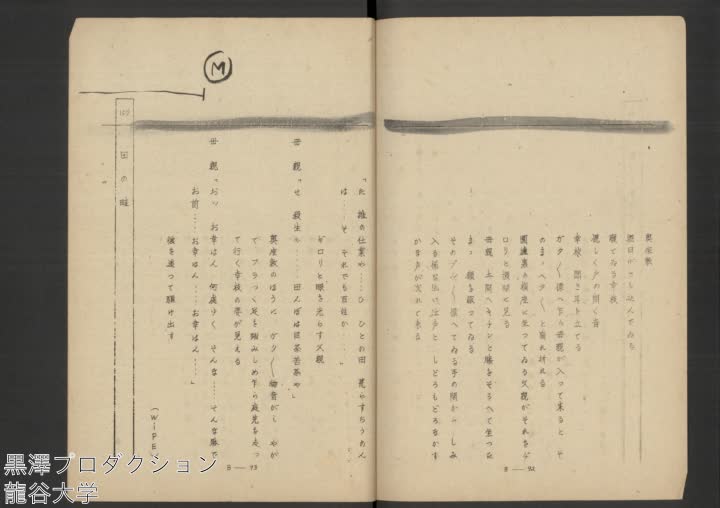 奥座敷
西日のさし込んでゐる
寝てゐる幸枝
激しく戸の開く音
幸枝 聞き耳を立てる
ガタ〱 慄へ乍ら母親が入つて来ると そ
のまゝヘタ〱 と崩れ折れる
囲爐裏の横座に坐つてゐる父親がそれをヂ
ロリと横眼に見る
母親 土間へキチンと膝をそろへて坐つたま
まっ 顔を蔽つてゐる
そのブル〱 慄へてゐる手の間から しみ
入る様な低い泣声と しどろもどろなかす
かな声が流れて来る
B — 92
「た 誰の仕業や……ひ ひとの田 荒らすちうもん
は……そ それでも百姓か……」
ギロリと眼を光らす父親
母親「せ 殺生な……… 田んぼは目茶苦茶や」
奥座敷のはうに ガタ〱 物音がし やが
て フラフラ足を踏みしめ乍ら庭先を走つ
て行く幸枝の姿が見える
母親「おッ お幸はん 何處ゆく そんな…… そんな躰で
お前…… お幸はん……お幸はん……」
後を追つて駆け出す
(WIPE)
B — 93
田の畦
M
黒澤プロダクション
龍谷大学